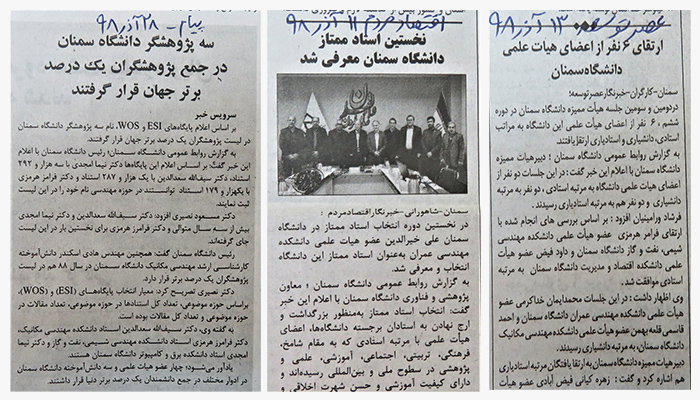 پیام - ۲۸ آذر ۹۸
سه پژوهشگر دانشگاه سمنان
در جمع پژوهشگران یک درصد
برتر جهان قرار گرفتند
سرویس خبر
بر اساس اعلام پایگاه‌های ESI و WOS، نام سه پژوهشگر دانشگاه سمنان
در لیست پژوهشگران یک درصد برتر جهان قرار گرفت.
به گزارش روابط عمومی دانشگاه سمنان؛ رئیس دانشگاه سمنان با اعلام
این خبر گفت: بر اساس اعلام این پایگاه‌ها دکتر نیما امجدی با سه هزار و ۲۹۲
استناد، دکتر سیف‌الله سعدالدین با یک هزار و ۲۸۷ استناد و دکتر فرامرز هرمزی
با یکهزار و ۱۷۹ استناد، توانستند در حوزه مهندسی نام خود را در این لیست
ثبت نمایند.
دکتر مسعود نصیری افزود: دکتر سیف‌الله سعدالدین و دکتر نیما امجدی
بیش از سه سال متوالی و دکتر فرامرز هرمزی برای نخستین بار در این لیست
جای گرفته‌اند.
رئیس دانشگاه سمنان گفت: همچنین مهندس هادی اسکندر دانش‌آموخته
کارشناسی ارشد مهندسی مکانیک دانشگاه سمنان در سال ۸۸ هم در لیست
یک درصد برتر جهان قرار دارد.
دکتر نصیری تصریح کرد: معیار انتخاب پایگاه‌های (ESI) و (WOS)،
براساس حوزه موضوعی، تعداد کل استنادها در حوزه موضوعی، تعداد مقالات در
حوزه موضوعی و تعداد کل مقالات بوده است.
به گفته وی، دکتر سیف‌الله سعدالدین استاد دانشکده مهندسی مکانیک،
دکتر فرامرز هرمزی استاد دانشکده مهندسی شیمی، نفت و گاز و دکتر نیما
امجدی استاد دانشکده برق و کامپیوتر دانشگاه سمنان هستند.
یادآور می‌شود؛ چهار عضو هیات علمی و سه دانش‌آموخته دانشگاه سمنان
در ادوار مختلف در جمع دانشمندان یک درصد برتر دنیا قرار داشتند.
اقتصاد مردم ۱۱ آذر ۹۸
نخستین استاد ممتاز
دانشگاه سمنان معرفی شد
سمنان-شاهورانی-خبرنگار اقتصاد مردم :
در نخستین دوره انتخاب استاد ممتاز در دانشگاه
سمنان علی خیرالدین عضو هیات علمی دانشکده
مهندسی عمران به‌عنوان استاد ممتاز این دانشگاه
انتخاب و معرفی شد.
به گزارش روابط عمومی دانشگاه سمنان ؛ معاون
پژوهشی و فناوری دانشگاه سمنان با اعلام این خبر
گفت: انتخاب استاد ممتاز به‌منظور بزرگداشت و
ارج نهادن به استادان برجسته دانشگاه‌ها، اعضای
هیأت علمی با مرتبه استادی که به مقام شامخ،
فرهنگی، تربیتی، اجتماعی، آموزشی، علمی و
پژوهشی در سطوح ملی و بین‌المللی رسیده‌اند و
دارای کیفیت آموزشی و حسن شهرت اخلاقی و
عصر توسعه ۱۳ آذر ۹۸
ارتقای ۶ نفر از اعضای هیات علمی
دانشگاه‌سمنان
سمنان-کارگران-خبرنگار عصر توسعه؛
در دومین و سومین جلسه هیأت ممیزه دانشگاه سمنان در دوره
ششم، ۶ نفر از اعضای هیأت علمی این دانشگاه به مراتب
استادی، دانشیاری و استادیاری ارتقا یافتند.
به گزارش روابط عمومی دانشگاه سمنان ؛ دبیر هیات ممیزه
دانشگاه سمنان با اعلام این خبر گفت : در این جلسات دو نفر از
اعضای هیات علمی دانشگاه به مرتبه استادی، دو نفر به مرتبه
دانشیاری و دو نفر هم به مرتبه استادیاری رسیدند.
فرشاد ورامینیان افزود : بر اساس بررسی های انجام شده با
ارتقای فرامرز هرمزی عضو هیأت علمی دانشکده مهندسی
شیمی، نفت و گاز دانشگاه سمنان و داود فیض عضو هیأت
علمی دانشکده اقتصاد و مدیریت دانشگاه سمنان به مرتبه
استادی موافقت شد.
وی اظهار داشت : در این جلسات محمدایمان خداکرمی عضو
هیات علمی دانشکده مهندسی عمران دانشگاه سمنان و احمد
قاسمی قلعه بهمن عضو هیات علمی دانشکده مهندسی مکانیک
دانشگاه سمنان، به مرتبه دانشیاری رسیدند.
دبیر هیات ممیزه دانشگاه سمنان به ارتقا یافتگان مرتبه استادیاری
هم اشاره کرد و گفت : زهره کیانی فیض آبادی عضو هیأت